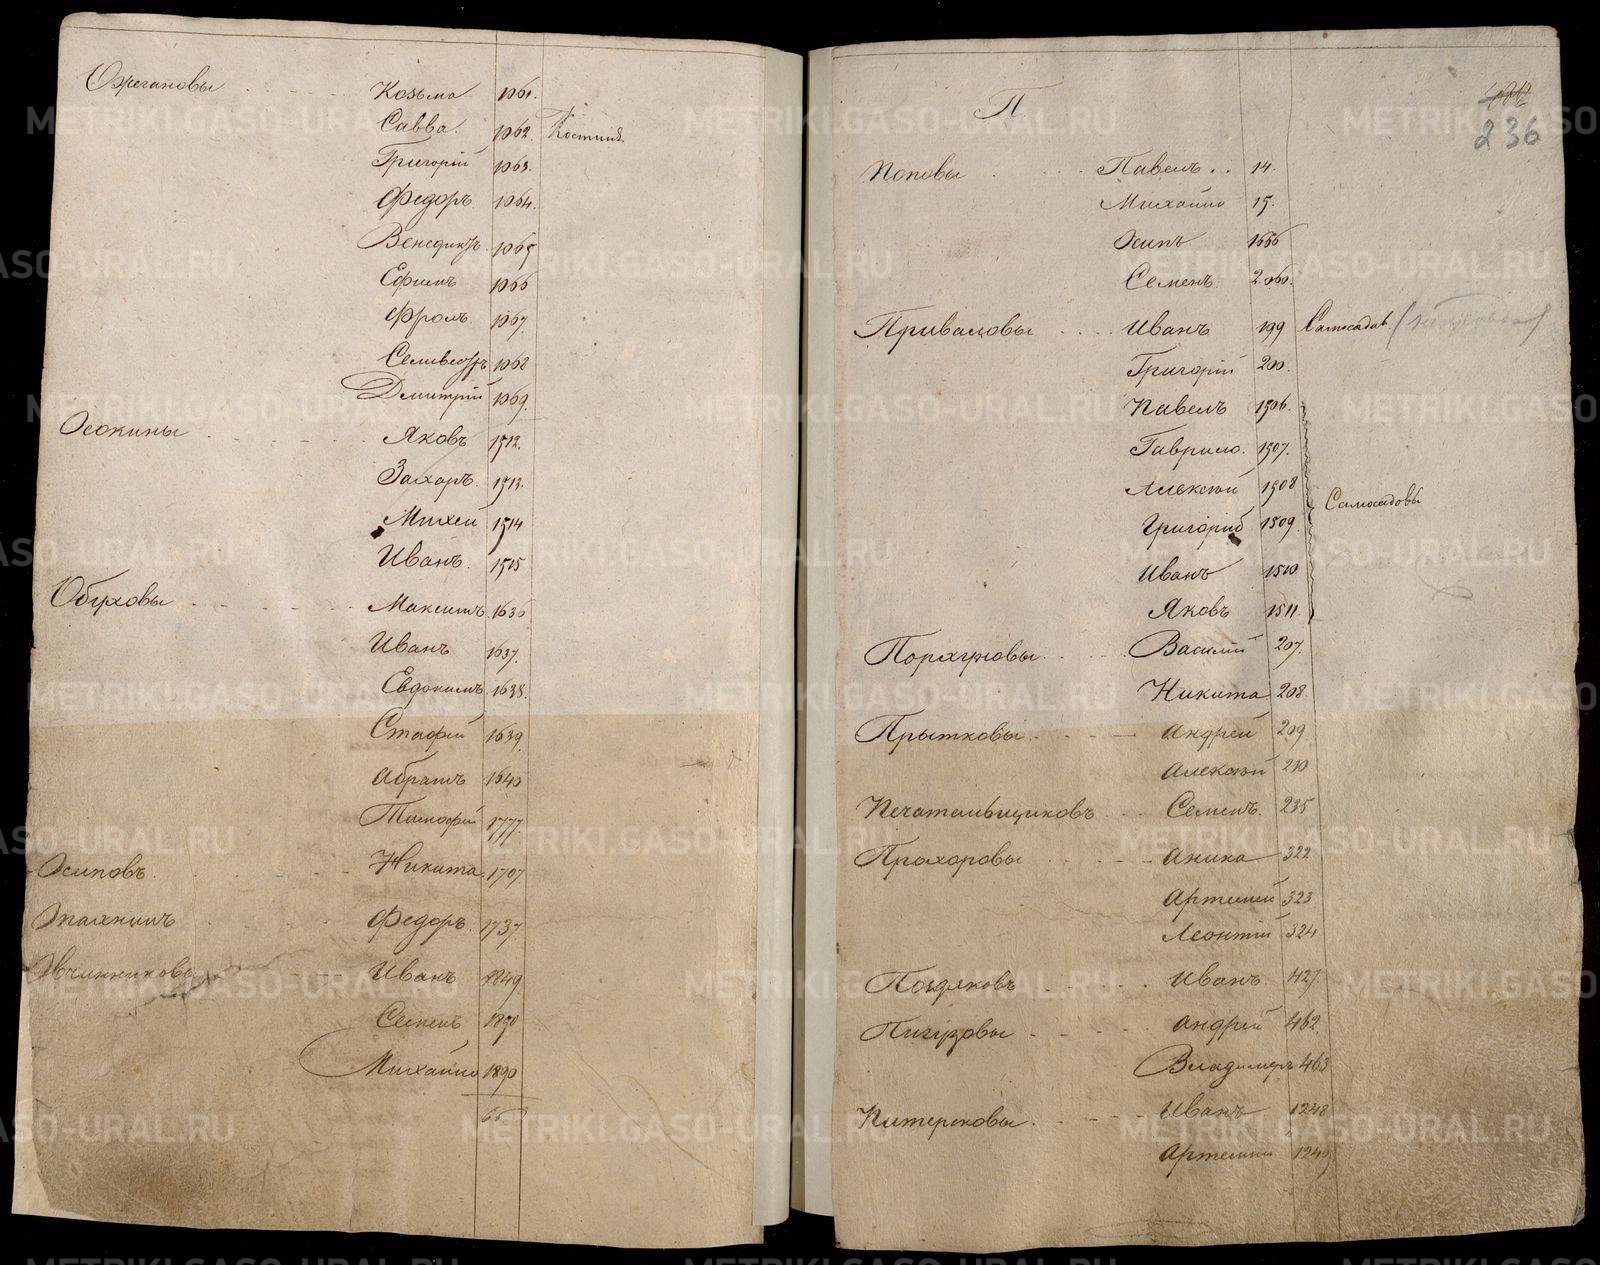 Ожегановы Козьма 1061.
Савва. 1062. Костинъ
Григорій 1063.
Федоръ 1064.
Венедиктъ 1065
Ефимъ 1066
Фролъ. 1067.
Селиверстъ 1068
Дмитрій 1069.
Осокины Яковъ 1512.
Захаръ. 1513.
Михей 1514
Иванъ. 1515
Обуховы Максимъ 1636
Иванъ 1637.
Евдокимъ 1638.
Стафей 1639.
Абрамъ 1640
Тимофей 1777.
Осиповъ Никита 1707
Федоръ. 1737
Овчинниковы Иванъ 1849.
Семенъ 1850
Михайло 1890
66
П
236
Поповы Павелъ 14.
Михайло 15.
Осипъ 1666
Семенъ. 2060.
Приваловы Иванъ 199 Самосадов
Григорій 200.
Павелъ 1506.
Гаврило. 1507.
Алексѣй 1508
Самосадовы
Григорій 1509.
Иванъ 1510
Яковъ 1511.
Василій 207.
Никита 208.
Прытковы Андрей 209.
Алексѣй 210
Печатальщиковъ Семенъ. 235
Прохоровы Аника 322
Артемій 323
Леонтій 324
Поздяковъ Иванъ 427.
Пигузовы Андрей 462.
Владимеръ 463
Питерсковы. Иванъ 1248
Артемій 1249